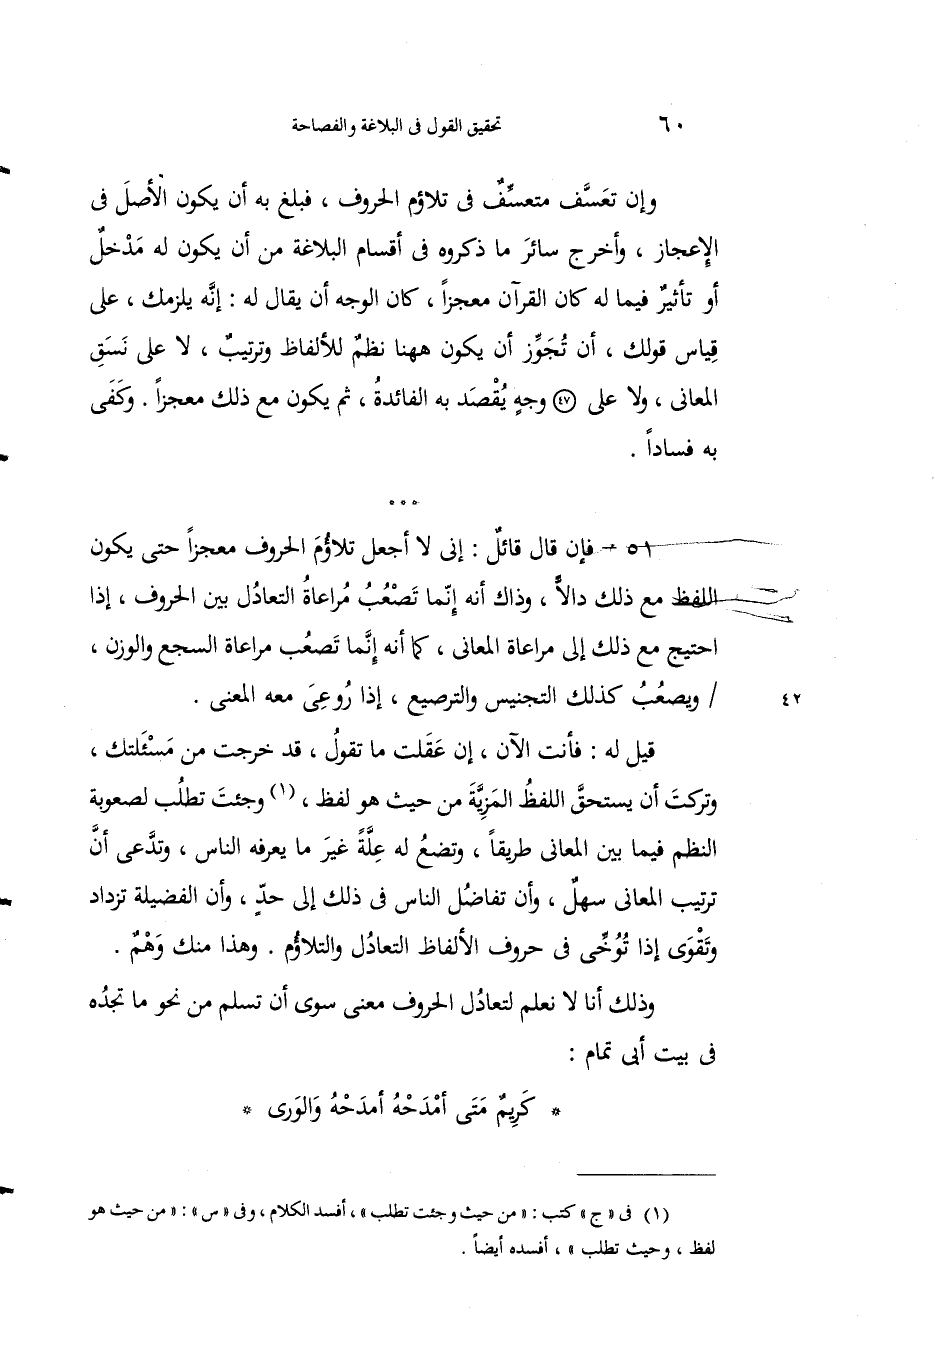 ٦٠ تحقيق القول فى البلاغة والفصاحة
وإن تعَسَّف متعسِّفٌ فى تلاؤم الحروف ، فبلغ به أن يكون الأصلَ فى
الإعجاز ، وأخرج سائرَ ما ذكروه فى أقسام البلاغة من أن يكون له مَدْخلٌ
أو تأثيرٌ فيما له كان القرآن معجزاً ، كان الوجه أن يقال له : إنَّه يلزمك ، على
قِياس قولك ، أن تُجَوِّز أن يكون ههنا نظمٌ للألفاظ وترتيبٌ ، لا على نَسَقِ
المعانى ، ولا على ٤٧ وجهٍ يُقْصَد به الفائدةُ ، ثم يكون مع ذلك معجزاً . وكَفَى
به فساداً .
* * *
٥١ - فإن قال قائلٌ : إنى لا أجعل تلاؤُمَ الحروف معجزاً حتى يكون
اللفظ مع ذلك دالاًّ ، وذاك أنه إنّما تَصْعُبُ مُراعاةُ التعادُل بين الحروف ، إذا
احتيج مع ذلك إلى مراعاة المعانى ، كما أنه إنَّما تَصعُب مراعاة السجع والوزن ،
٤٢ / ويصعُبُ كذلك التجنيس والترصيع ، إذا رُوعِىَ معه المعنى .
قيل له : فأنت الآن ، إن عَقَلت ما تقولُ ، قد خرجت من مَسْئَلتك ،
وتركتَ أن يستحقَّ اللفظُ المَزِيَّةَ من حيث هو لفظ ، (١) وجئتَ تطلُب لصعوبة
النظم فيما بين المعانى طريقاً ، وتضعُ له عِلَّةً غيرَ ما يعرفه الناس ، وتدَّعى أنَّ
ترتيب المعانى سهلٌ ، وأن تفاضُل الناس فى ذلك إلى حدٍّ ، وأن الفضيلة تزداد
وتَقْوَى إذا تُوُخِّى فى حروف الألفاظ التعادُل والتلاؤُم . وهذا منك وَهْمٌ .
وذلك أنا لا نعلم لتعادُل الحروف معنى سوى أن تسلم من نحو ما تجدُه
فى بيت أبى تمام :
* كَرِيمٌ مَتَى أمْدَحْهُ أمدَحْهُ وَالوَرى *
(١) فى « ج » كتب : « من حيث وجئت تطلب » ، أفسد الكلام ، وفى « س » : « من حيث هو
لفظ ، وحيث تطلب » ، أفسده أيضاً .